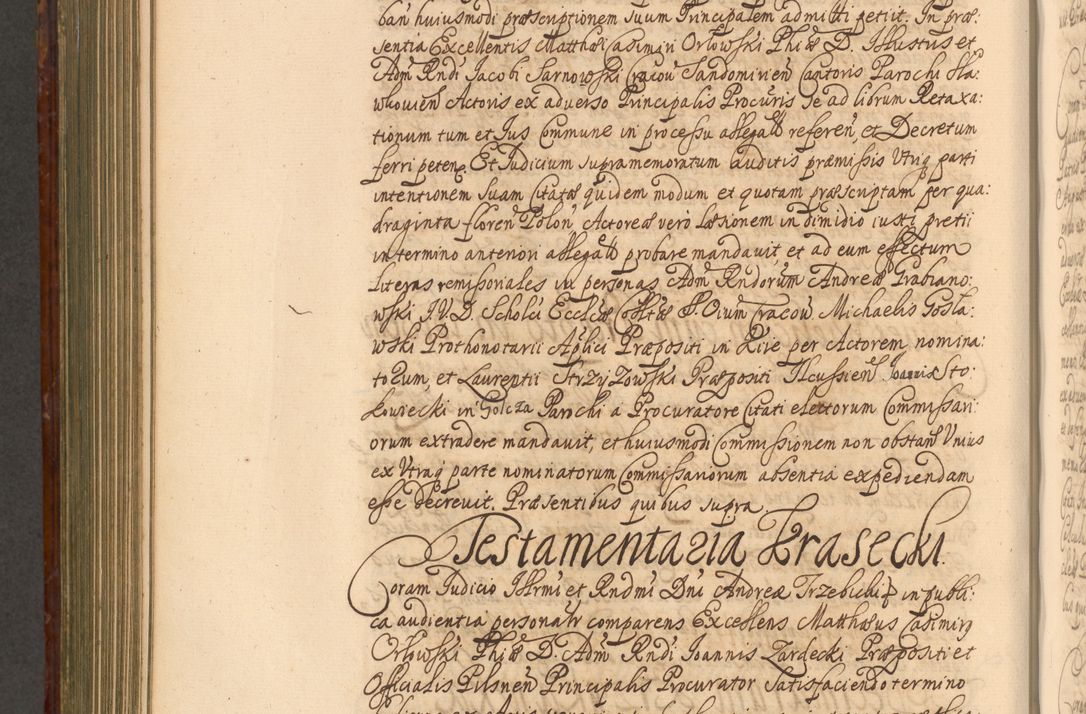 ban huiusmodi præscriptionem suum Principalem admitti petiit. In præ:
sentia Excellentis Matthæi Casimiri Orłowski Phiæ D. Illustris et
Adm Rndi Jacobi Sarnowski Cracoŭ Sandomirień Cantoris Parochi Sła:
wkovień Actoris ex adverso Principalis Procuris se ad librum Retaxa:
tionum tum et Jus Commune in processu allegatt referen, et Decretum
ferri peten. Et Judicium supramemoratum auditis præmissis Utriq parti
intentionem suam Citatæ quidem modum et quotam præscriptam per qua:
draginta floren Polon, Actoreæ vero læsionem in dimidio iusti pretii
in termino anteriori allegatt probare mandavit, et ad eum effectum
literas remissoriales in personas Adm Rndorum Andreæ Grabiano:
wski J.V.D. Scholci Ecclæ Colltæ S. Oium Cracoŭ Michaelis Gosła:
wski Prothonotarii Aplici Præpositi in Xiie per Actorem nomina:
torum, et Laurentii Strzyżowski Præpositi Ilcussień Joannis Sto:
kowiecki in Golcza Parochi a Procuratore Citati electorum Commissari:
orum extradere mandavit, et huiusmodi Commissionem non obstan Unius
ex Utraq parte nominatorum Commissariorum absentia expediendam
esse decrevit. Præsentibus quibus supra.
Testamentaria Krasecki.
Coram Judicio Illrmi et Rndmi Dni Andreæ Trzebicki in publi:
ca audientia personalr comparens Excellens Matthæus Casimirq
Orłowski Phiæ D. Adm Rndi Joannis Zardecki Præpositi et
Officialis Pilsnen Principalis Procurator Satisfaciendo termino